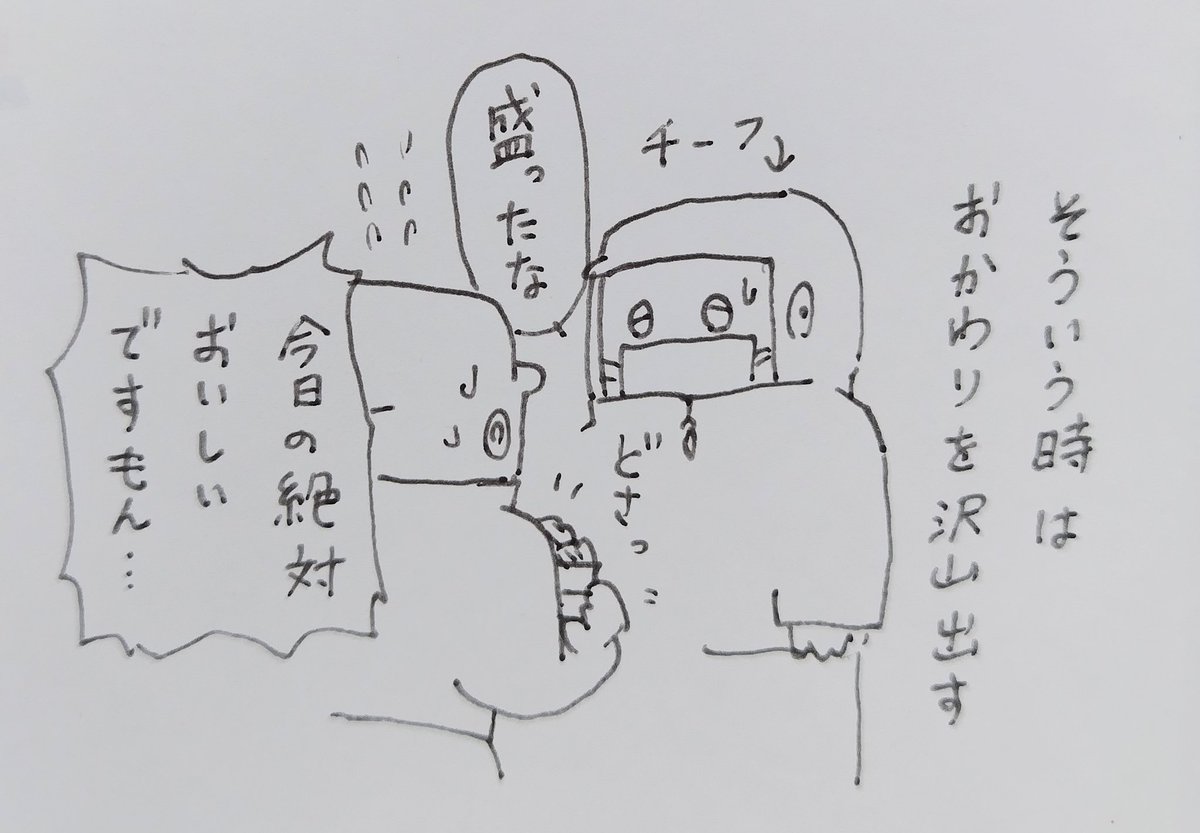 そういう時は
おかわりを沢山出す
チーフ↓
盛ったな
どさっ
今日の絶対
おいしい
ですもん…